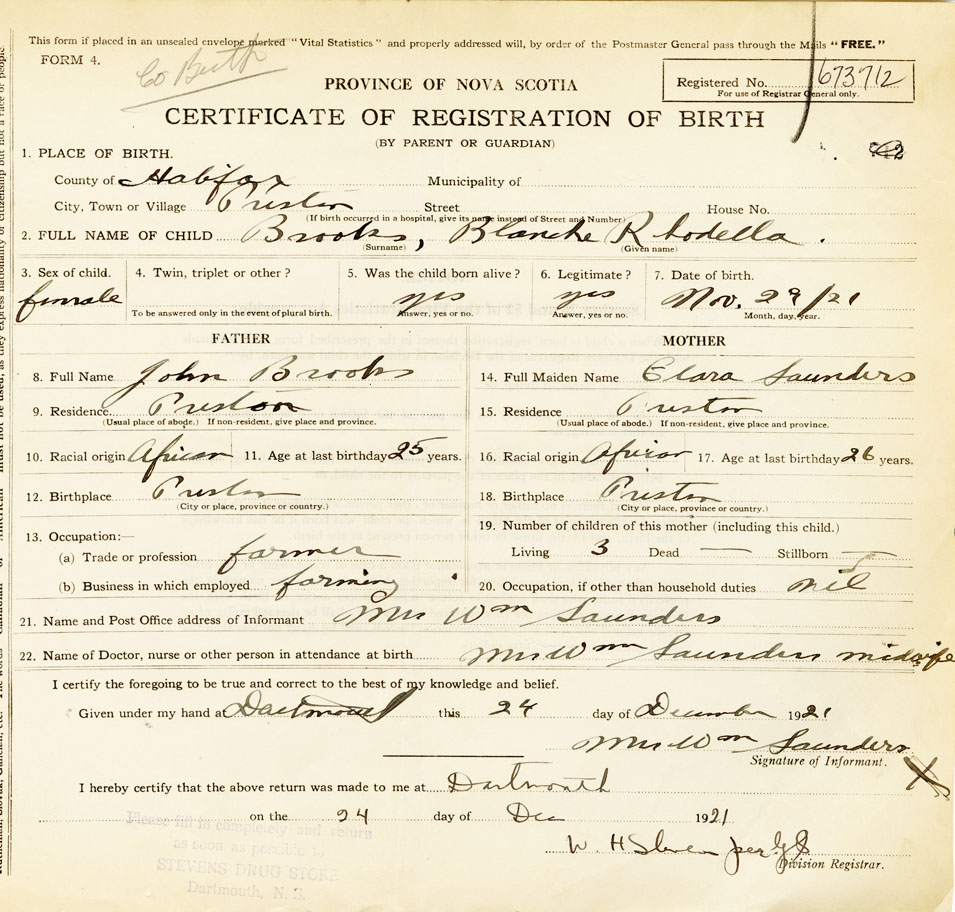 This form if placed in an unsealed envelope marked "Vital Statistics" and properly addressed will, by order of the Postmaster General pass through the Mails "FREE."
FORM 4.
Co Birth
PROVINCE OF NOVA SCOTIA
Registered No. 673712
For use of Registrar General only.
CERTIFICATE OF REGISTRATION OF BIRTH
(BY PARENT OR GUARDIAN)
1. PLACE OF BIRTH.
County of Halifax Municipality of
City, Town or Village Preston Street House No.
(If birth occurred in a hospital, give its name instead of Street and Number)
2. FULL NAME OF CHILD Brooks, Blanche Rhodella.
(Surname) (Given name)
3. Sex of child. 4. Twin, triplet or other? 5. Was the child born alive? 6. Legitimate? 7. Date of birth.
female yes yes Nov. 29/21
To be answered only in the event of plural birth. Answer, yes or no. Answer, yes or no. Month, day, year.
FATHER MOTHER
8. Full Name John Brooks 14. Full Maiden Name Clara Saunders
9. Residence Preston 15. Residence Preston
(Usual place of abode.) If non-resident, give place and province. (Usual place of abode.) If non-resident, give place and province.
10. Racial origin African 11. Age at last birthday 25 years. 16. Racial origin African 17. Age at last birthday 26 years.
12. Birthplace Preston 18. Birthplace Preston
(City or place, province or country.) (City or place, province or country.)
13. Occupation:— 19. Number of children of this mother (including this child.)
(a) Trade or profession farmer Living 3 Dead — Stillborn —
(b) Business in which employed farming 20. Occupation, if other than household duties nil
21. Name and Post Office address of Informant Mrs Wm Saunders
22. Name of Doctor, nurse or other person in attendance at birth Mrs Wm Saunders midwife
I certify the foregoing to be true and correct to the best of my knowledge and belief.
Given under my hand at Dartmouth this 24 day of December 1921
Mrs Wm Saunders
Signature of Informant. X
I hereby certify that the above return was made to me at Dartmouth
on the 24 day of Dec 1921
W. H. per
Division Registrar.
Please fill in completely and return
as soon as possible to
STEVENS DRUG STORE
Dartmouth, N. S.